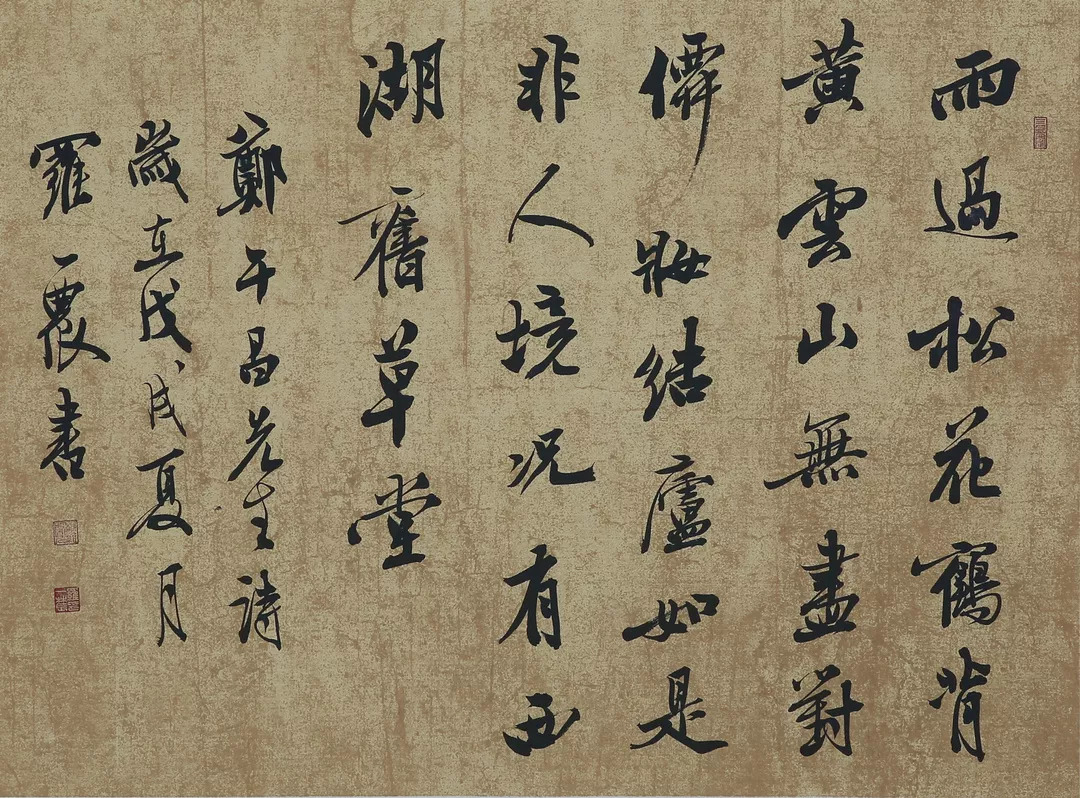 雨過松花鶴背
黃雲山無盡對
僊妝結廬如是
非人境況有西
湖舊草堂
鄭午昌先生詩
歲在戊戌夏月
羅一農書